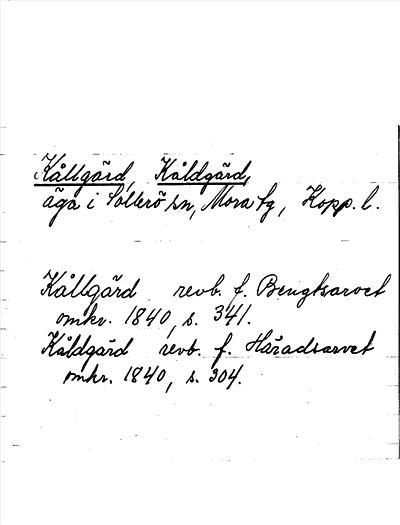 Kållgård, Kåldgård,
äga i Sollerö sn, Mora tg, Kopp. l.
Kållgård revb. f. Bengtsarvet
omkr. 1840, s. 341.
Kåldgård revb. f. Häradsarvet
omkr. 1840, s. 304.